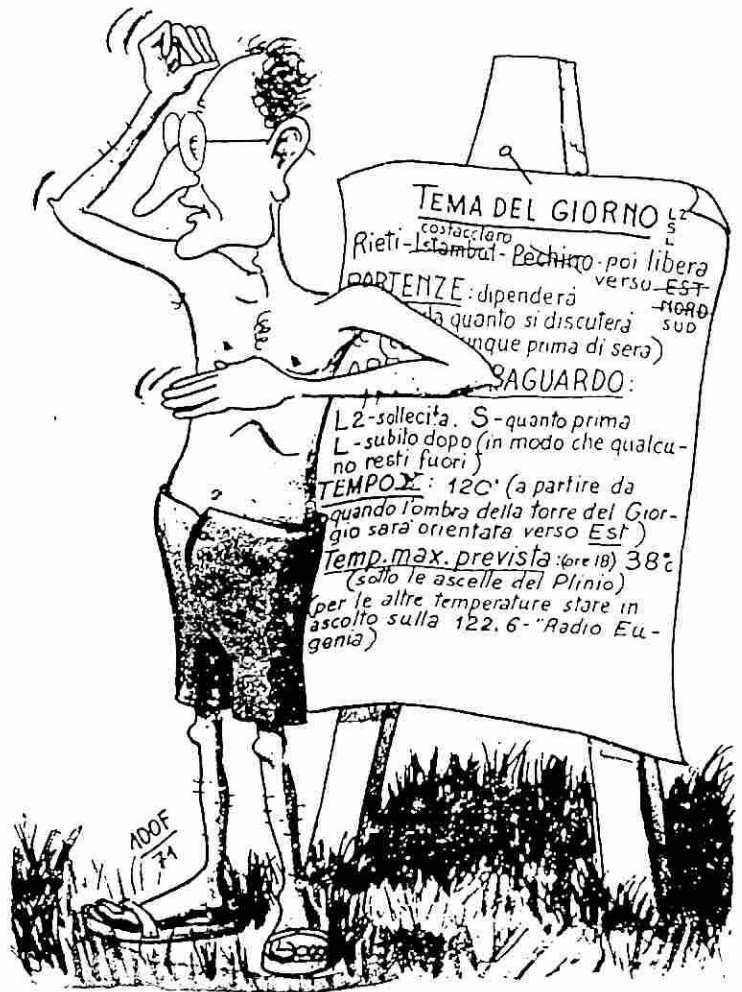 TEMA DEL GIORNO
L2
S
L
costacciaro
Rieti-Istambul-Pechino-poi libera
verso EST
NORD
SUD
PARTENZE: dipenderà
da quanto si discuterà
unque prima di sera)
RAGUARDO:
L2-sollecita. S-quanto prima
L-subito dopo (in modo che qualcu-
no resti fuori)
TEMPO Σ: 120' (a partire da
quando l'ombra della torre del Gior-
gio sarà orientata verso Est)
Temp. max. prevista: (ore 18) 38°c
(sotto le ascelle del Plinio)
(per le altre temperature stare in
ascolto sulla 122.6-"Radio Eu-
genia)
ADOF
71